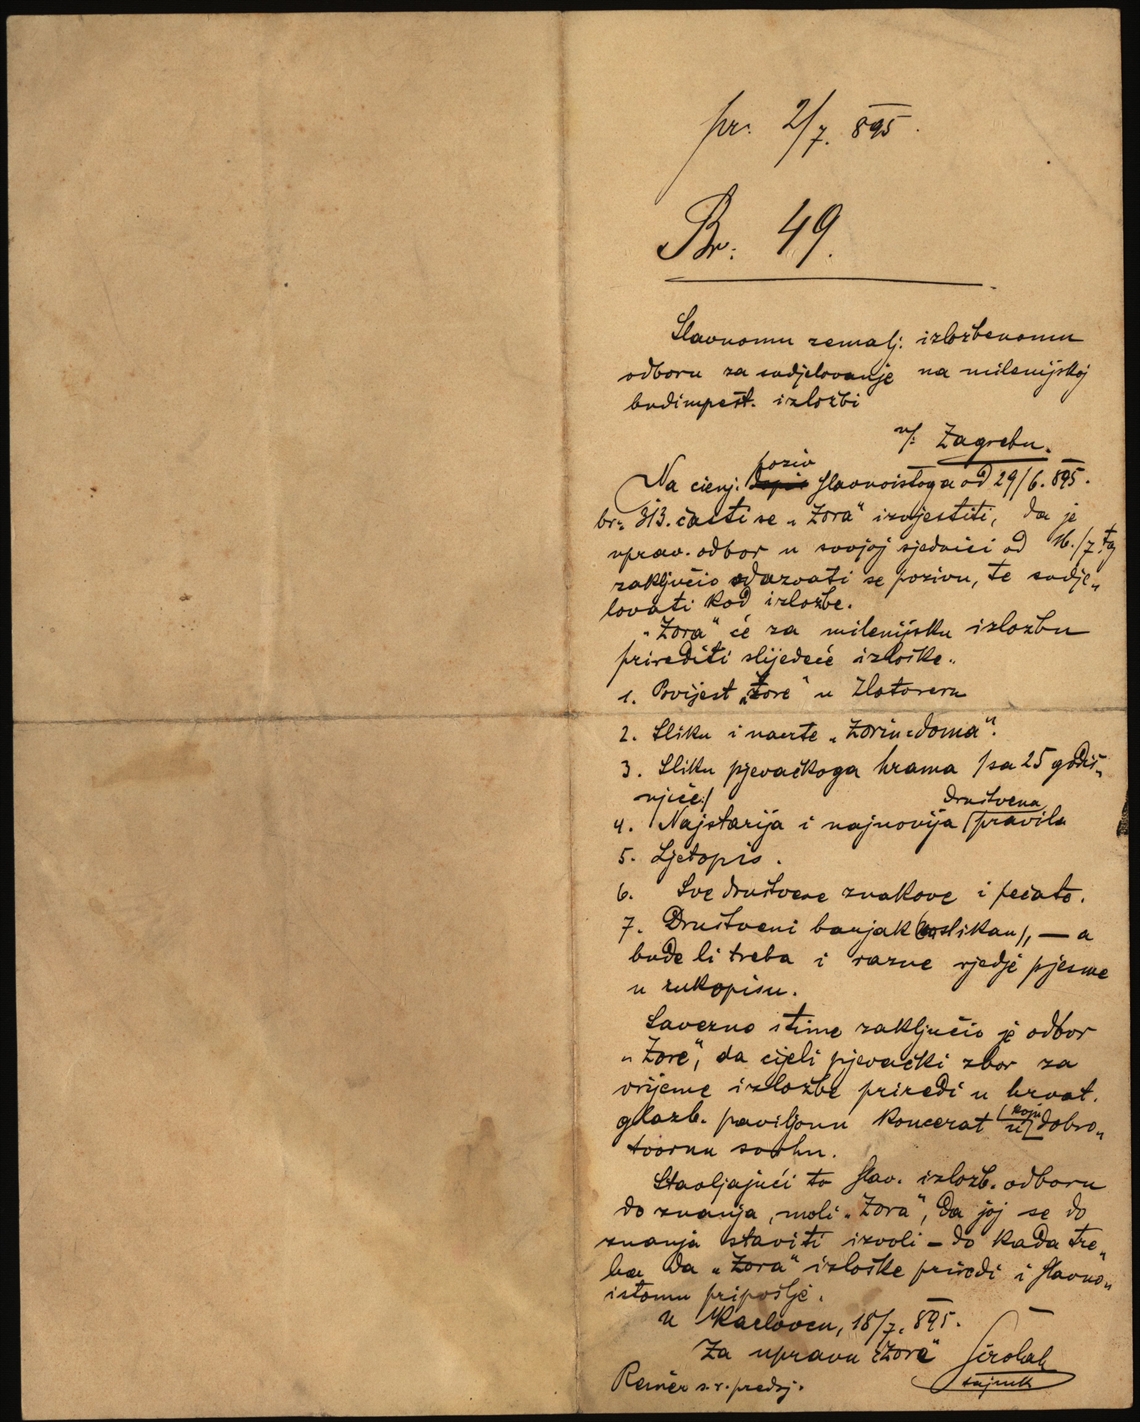 pr. 2/7. 895.
Br. 49.
Slavnomu zemalj. izložbenomu
odboru za sudjelovanje na milenijskoj
budimpešt. izložbi
u/. Zagrebu.
poziv
Na cienj. slavnoistoga od 29/6. 895.
br. 313. časti se „Zora" izvjestiti, da je
uprav. odbor u svojoj sjednici od 16./7. tg
zaključio odazvati se pozivu, te sudje„
lovati kod izložbe.
„Zora" će za milenijsku izložbu
prirediti slijedeće izloške.
1. Povijest „Zore" u Zlatorezu
2. Sliku i nacrte „Zorin-doma".
3. Sliku pjevačkoga hrama /sa 25 godiš„
njice/
društvena
4. Najstarija i najnovija pravila
5. Ljetopis.
6. Sve društvene znakove i pečate.
7. Društveni barjak (naslikan), — a
bude li treba i razne rjedje pjesme
u rukopisu.
Savezno stime zaključio je odbor
„Zore", da cijeli pjevački zbor za
vrijeme izložbe priredi u hrvat.
glazb. paviljonu koncerat u koju dobro„
tvornu svrhu.
Stavljajući to slav. izlozb. odboru
do znanja, moli „Zora", da joj se do
znanja staviti izvoli – do kada tre„
ba da „Zora" izloške priredi i slavno„
istomu pripošlje.
U Karlovcu, 18/7. 895.
Za upravu „Zore"
Širolah
tajnik
Reiner s.r. predsj.